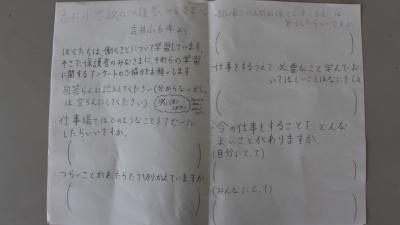 吉井小学校の保護者のみなさまへ
吉井小6年より
ぼくたちは働くことについて学習しています。
そこで、保護者のみなさまに、それらの学習
に関するアンケートのご協力をお願いします
回答らんに記入してください(分からない
は空らんにしてください)
・仕事場ではどのようなことをアピール
したらいいですか。
・つらいことがあったらどう切りかえていますか
は
どうしたらいいですか
・仕事をするうえで、必要なこと学んでお
いてほしいことはなにですか
・今の仕事をすることで、どんな
よいことがありますか。
(自分にとって)
(みんなにとって)